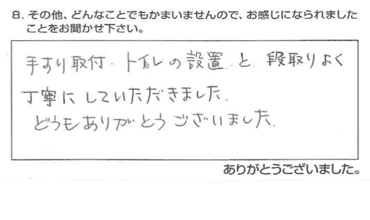 8. その他、どんなことでもかまいませんので、お感じになられました
ことをお聞かせ下さい。
手すり取付・トイレの設置と段取りよく
丁寧にしていただきました。
どうもありがとうございました。
ありがとうございました。